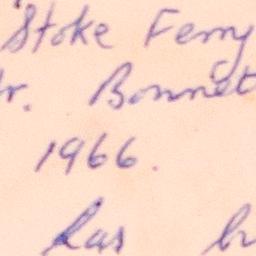 Stoke Ferry
r. Bonnet
1966.
has br